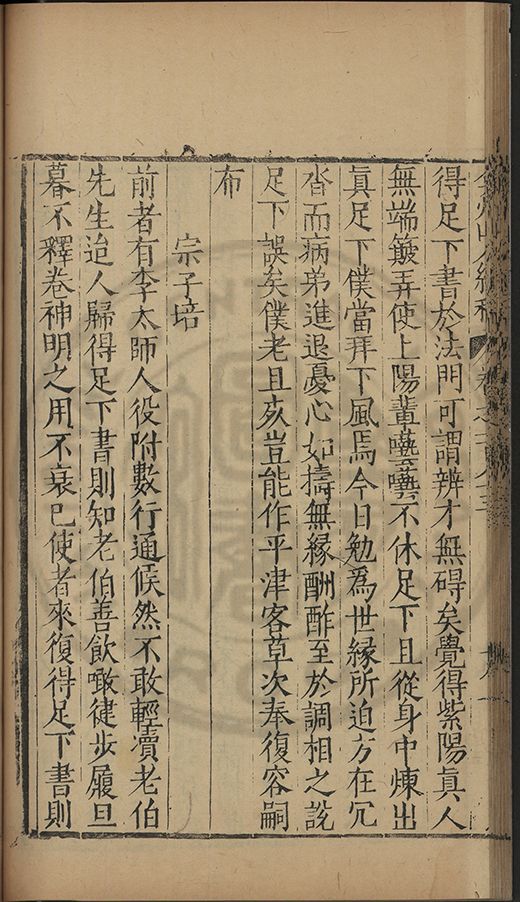 得足下書於法門可謂辨才無碍矣覺得紫陽真人
無端簸弄使上陽輩囈囈不休足下且從身中煉出
眞足下僕當拜下風焉今日勉爲世縁所迫方在冗
沓而病弟進退憂心如擣無縁酬酢至於調相之說
足下誤矣僕老且亥豈能作平津客草次奉復容嗣
布
宗子培
前者有李太師人役附數行通候然不敢輕瀆老伯
先生迨人歸得足下書則知老伯善飲噉徤步履旦
暮不釋卷神明之用不衰已使者來復得足下書則